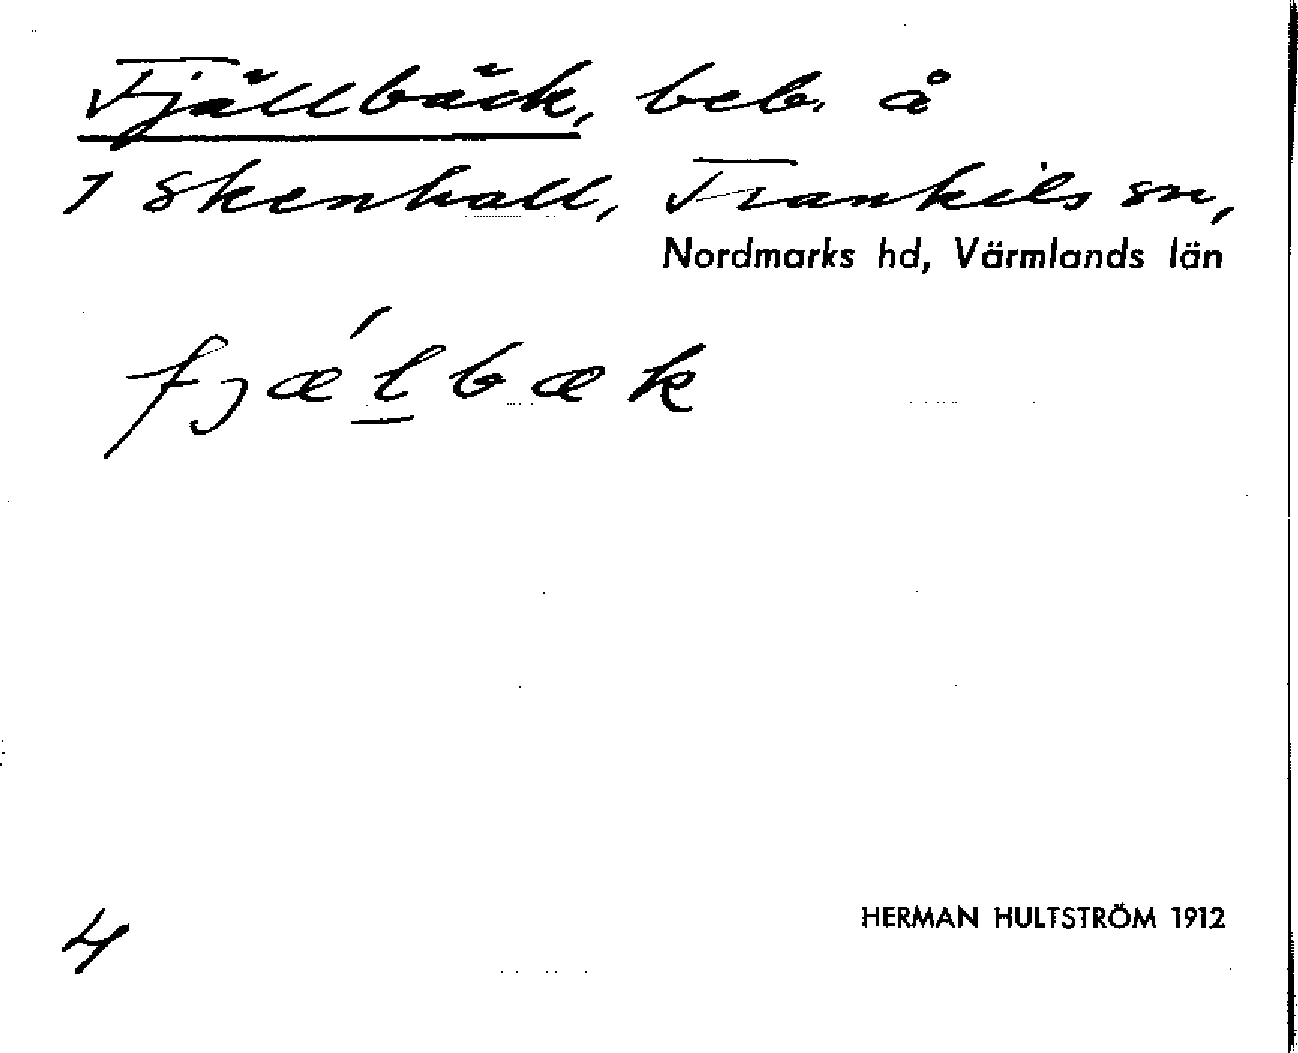 Fjällbäck, beb. å
1 Skenhall, Trankils sn,
Nordmarks hd, Värmlands län
fjælbæk
4
HERMAN HULTSTRÖM 1912